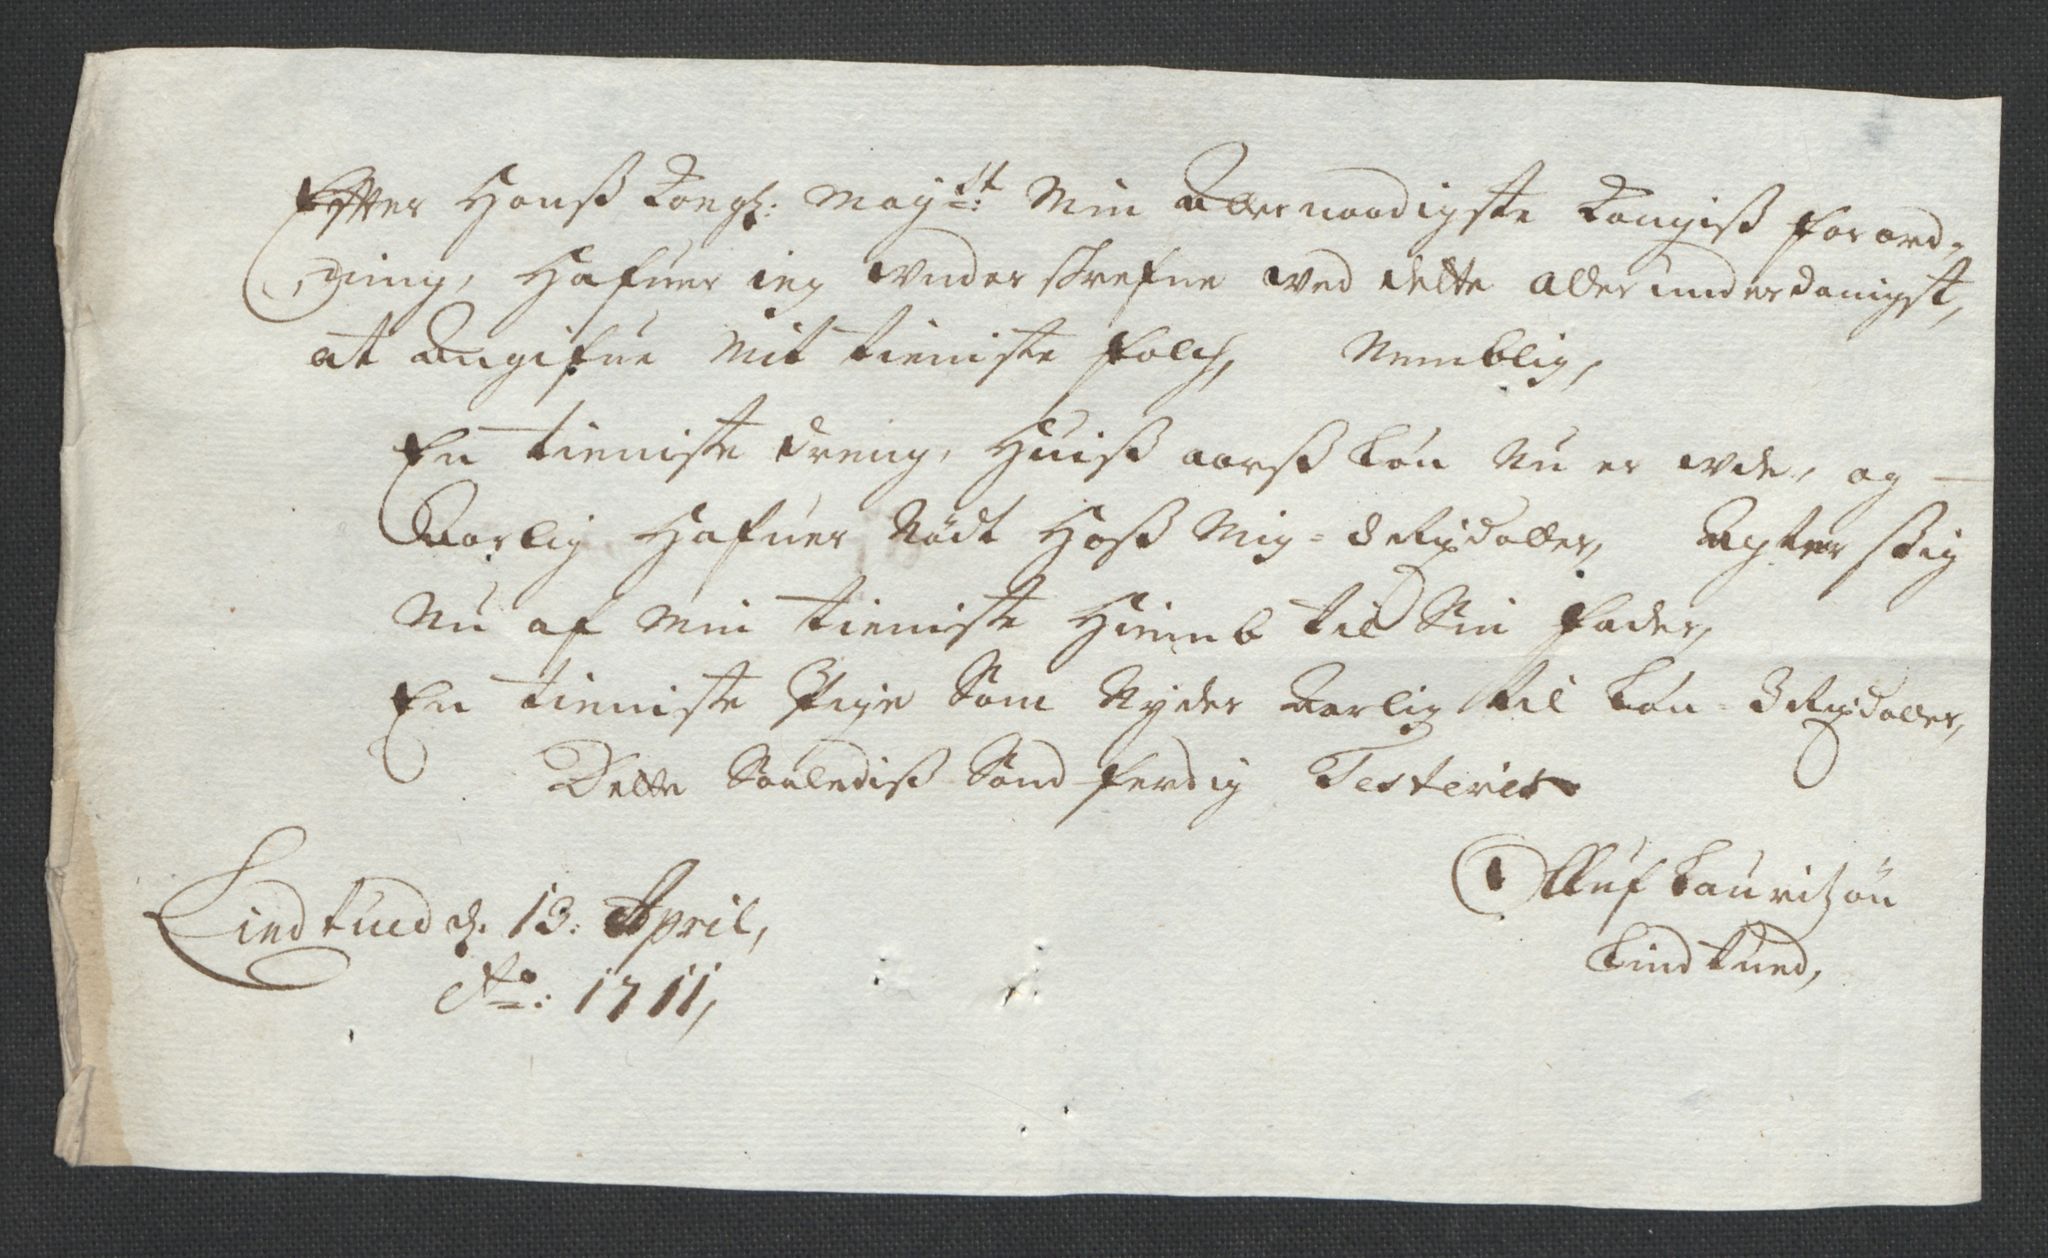 Effter Hanß Kongl: May:st Min Allernaadigste Kongiß forord¬
ning, Hafuer ieg Vnderskrefne Ved dette allerunderdanigst,
at Angifue Mit tieniste folch, Nemblig,
En tieniste dreng, Huiß aarß løn Nu er Vde, og
Aarlig Hafuer Nødt Hoß Mig = 8 Rixdaller, Agter Sig
Nu af Min tieniste Hiemb til Sin Fader,
En tieniste Pige Som Nyder Aarlig til Løn = 3 Rixdaller,
Dette Saaledis Sandferdig Testerer
Lindtued d. 13: April,
Ao: 1711,
Olluf Lauritzøn
Lindtued,